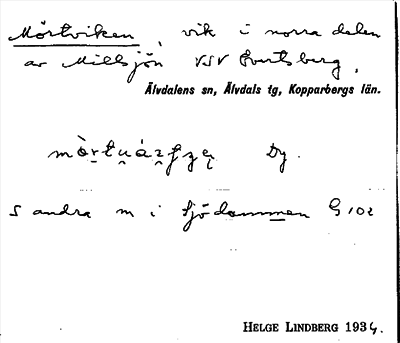 Mörtviken, vik i norra delen
av Millsjön VSV Evertsberg,
Älvdalens sn, Älvdals tg, Kopparbergs län.
Dy.
S andra m i sjödammen G 102
HELGE LINDBERG 1934.